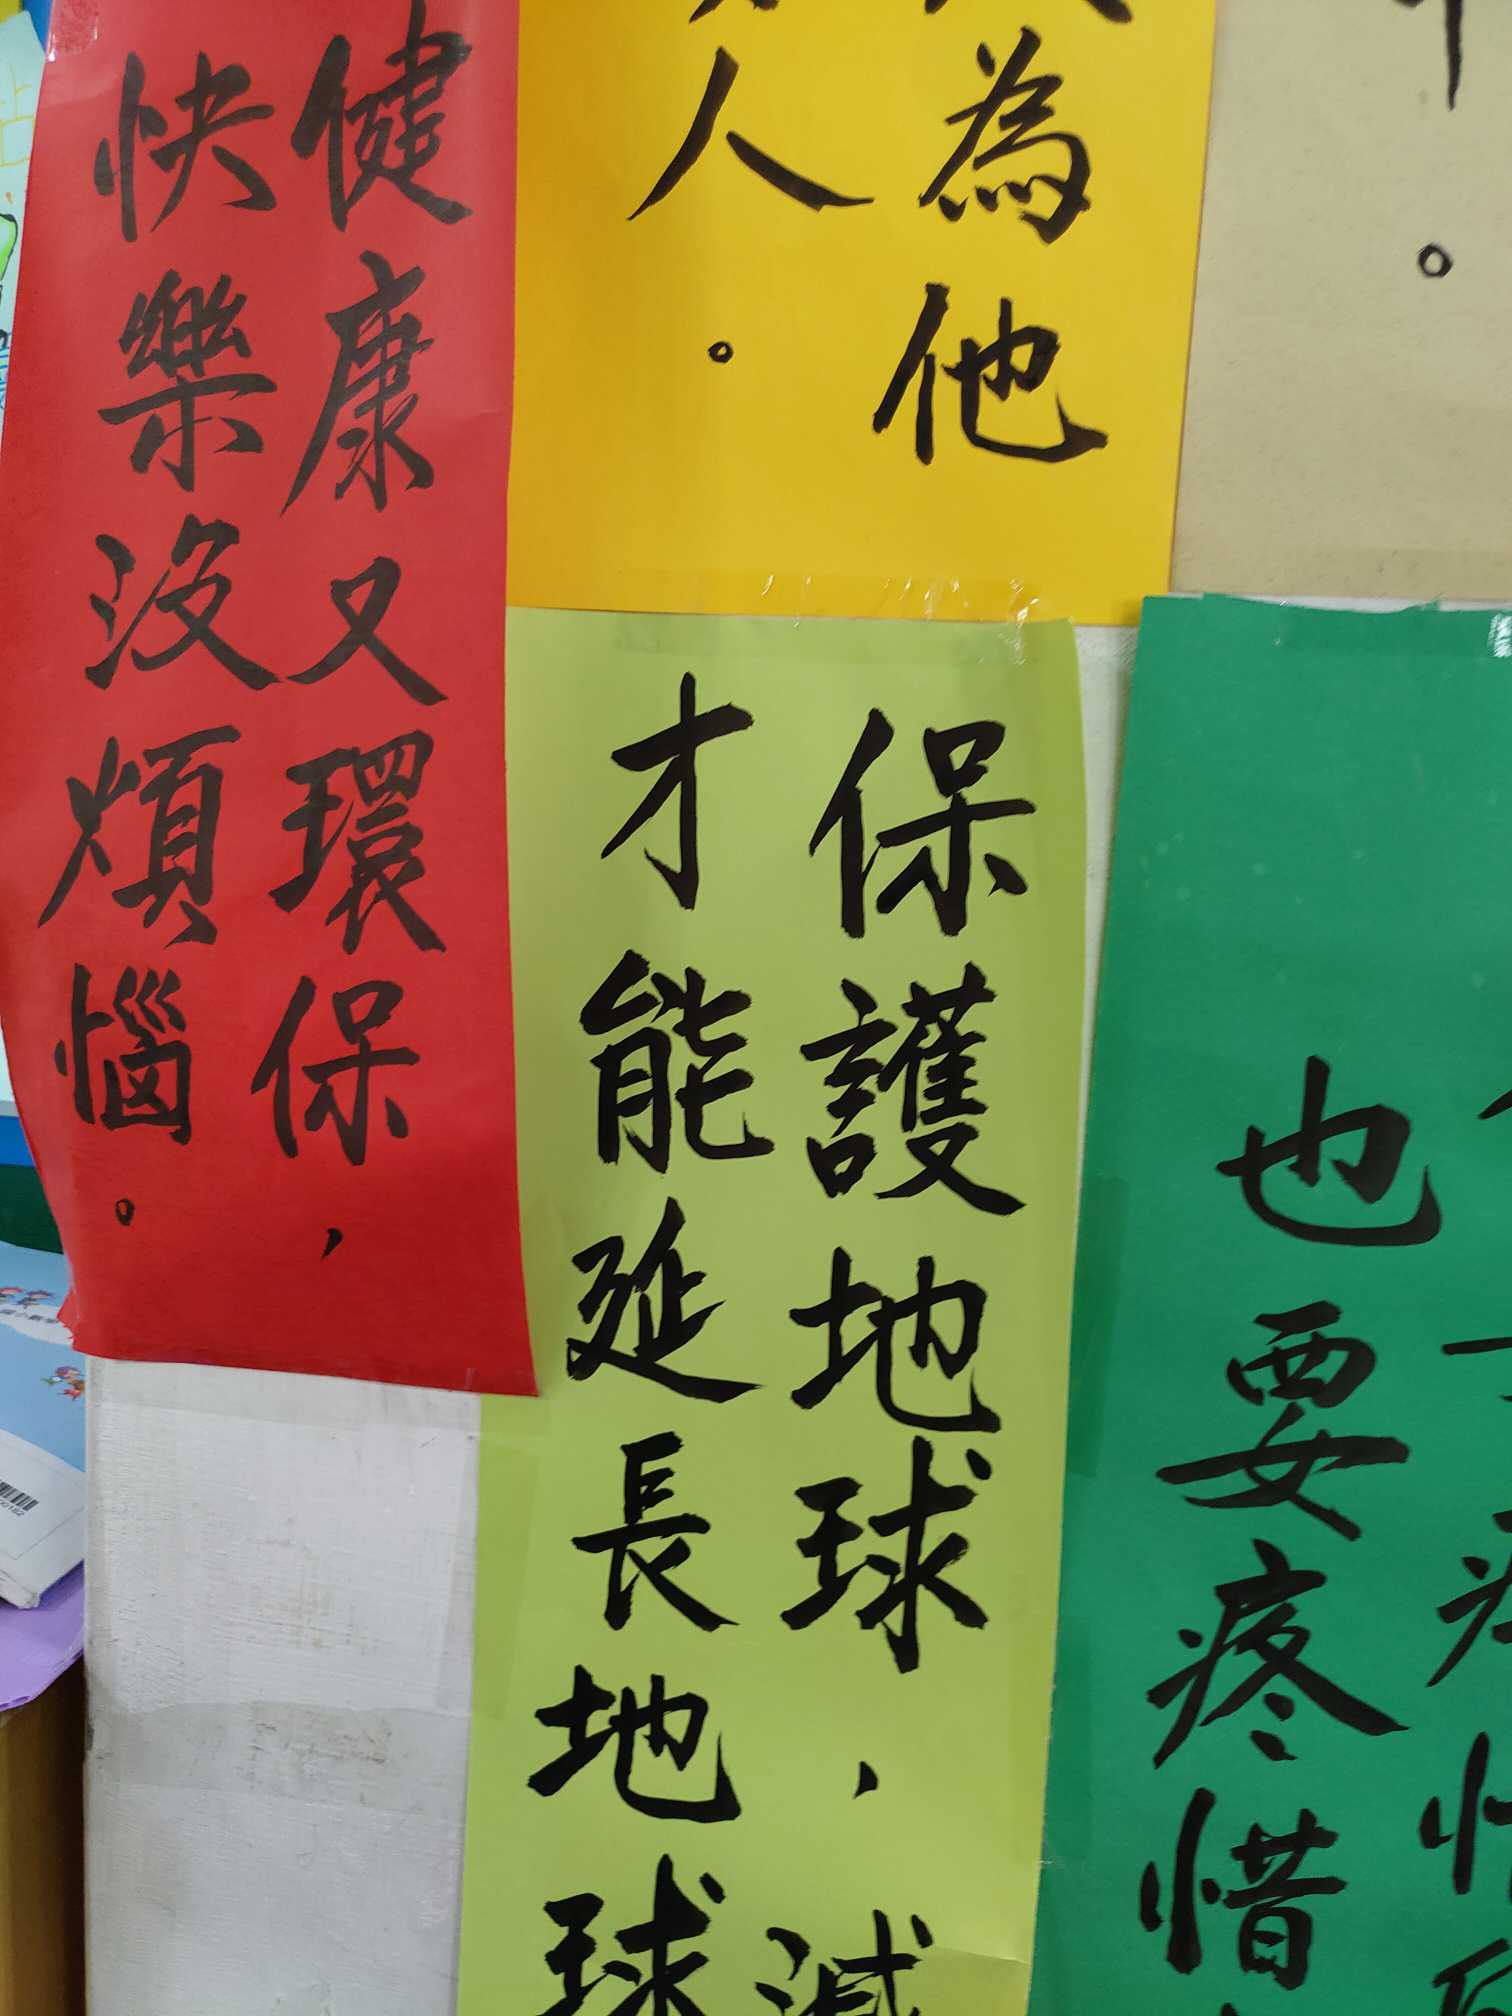 健康又環保，
快樂沒煩惱。
為他
人。
保護地球，減
才能延長地球
也要疼惜